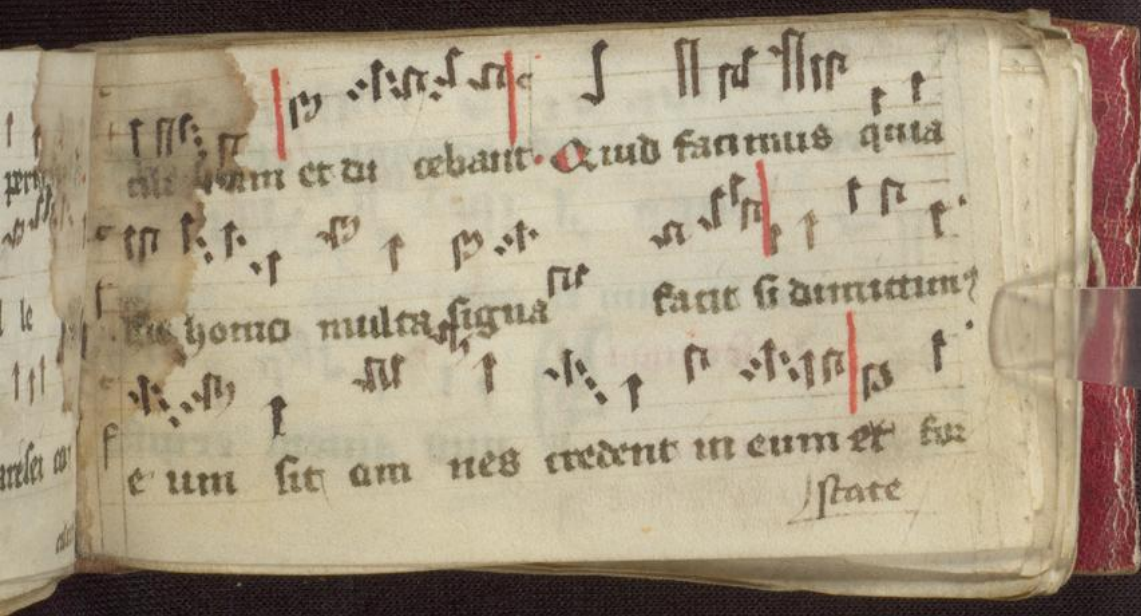 et di cebant. Quid facimus quia
hic homo multa signa facit si dimittim9
e um sic om nes credent in eum et for
state